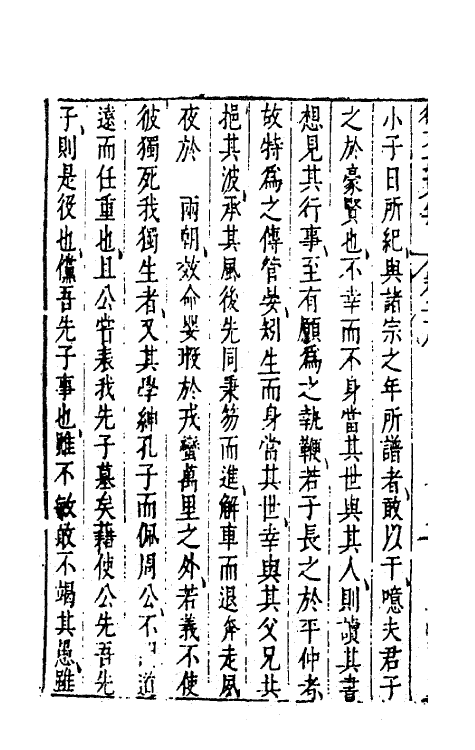 小子日所紀與諸宗之年所譜者敢以干噫夫君子
之於豪賢也不幸而不身當其世與其人則讀其書
想見其行事至有願爲之執鞭若子長之於平仲者
故特爲之傳管晏矧生而身當其世幸與其父兄共
挹其波承其風後先同秉笏而進解車而退奔走夙
夜於 兩朝效命嬰瑕於戎蠻萬里之外若義不使
彼獨死我獨生者又其學紳孔子而佩周公不 道
遠而任重也且公嘗表我先子墓矣藉使公先吾先
子則是役也儻吾先子事也雖不敏敢不竭其愚雖